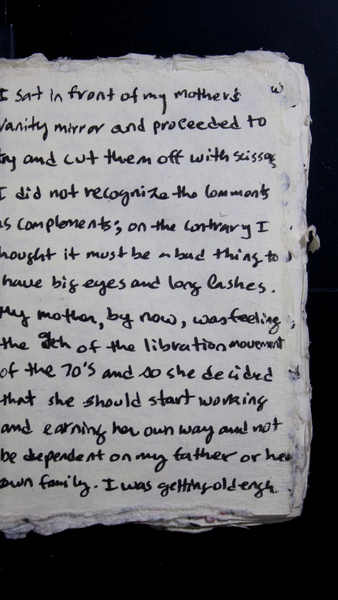 I sat in front of my mother's
vanity mirror and proceeded to
try and cut them off with scissors
I did not recognize the comments
as complements; on the contrary I
thought it must be a bad thing to
have big eyes and long lashes.
My mother, by now, was feeling
the itch of the libration movement
of the 70's and so she decided
that she should start working
and earning her own way and not
be dependent on my father or her
own family. I was getting old engh